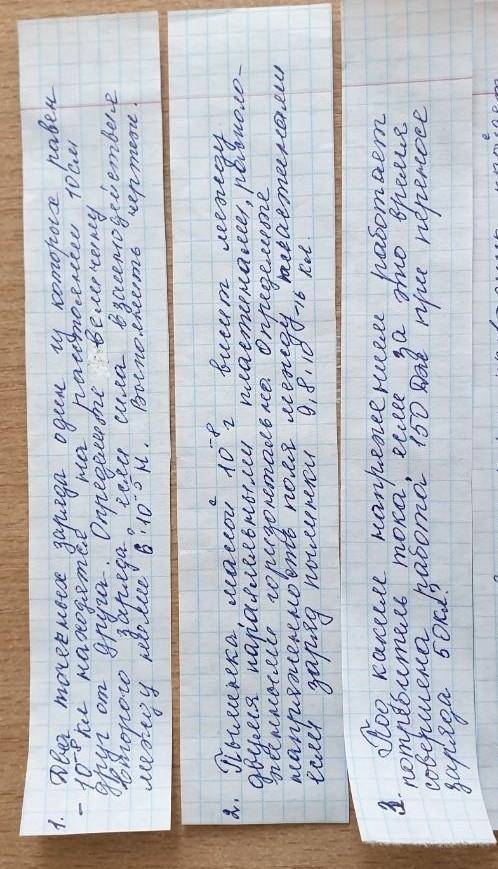 1. Два точечных заряда один из которых равен
- 10⁻⁸ Кл находятся на расстоянии 10 см
друг от друга. Определите величину
второго заряда если сила взаимодействия
между ними 6·10⁻⁵ Н. Выполнить чертеж.
2. Пылинка, массой 10⁻⁸ г висит между
двумя параллельными пластинами, располо-
женными горизонтально. Определите
напряженность поля между пластинами
если заряд пылинки 9,8·10⁻¹⁶ Кл.
3. Под каким напряжением работает
потребитель тока, если за это время
совершена работа 150 Дж при переносе
заряда 50 Кл?